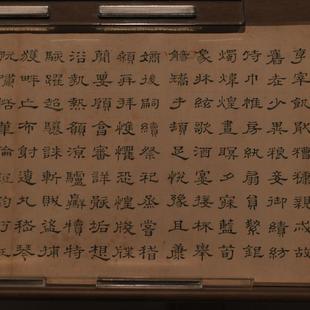 亨宰飢厭糟糠親戚故
舊老少異粮妾御績紡
侍巾帷房紈扇員絜銀
燭煒煌晝瞑夕寐藍筍
象牀絃歌酒宴接杯舉
觴矯手頓足悅豫且康
嫡後嗣續祭祀蒸嘗稽
顙再拜悚懼恐惶牋牒
簡要顧答審詳骸垢想
浴執熱願涼驢騾犢特
駭躍超驤誅斬賊盜捕
獲畔亡布射遼丸嵇琴
阮嘯恬筆倫紙鈞巧任